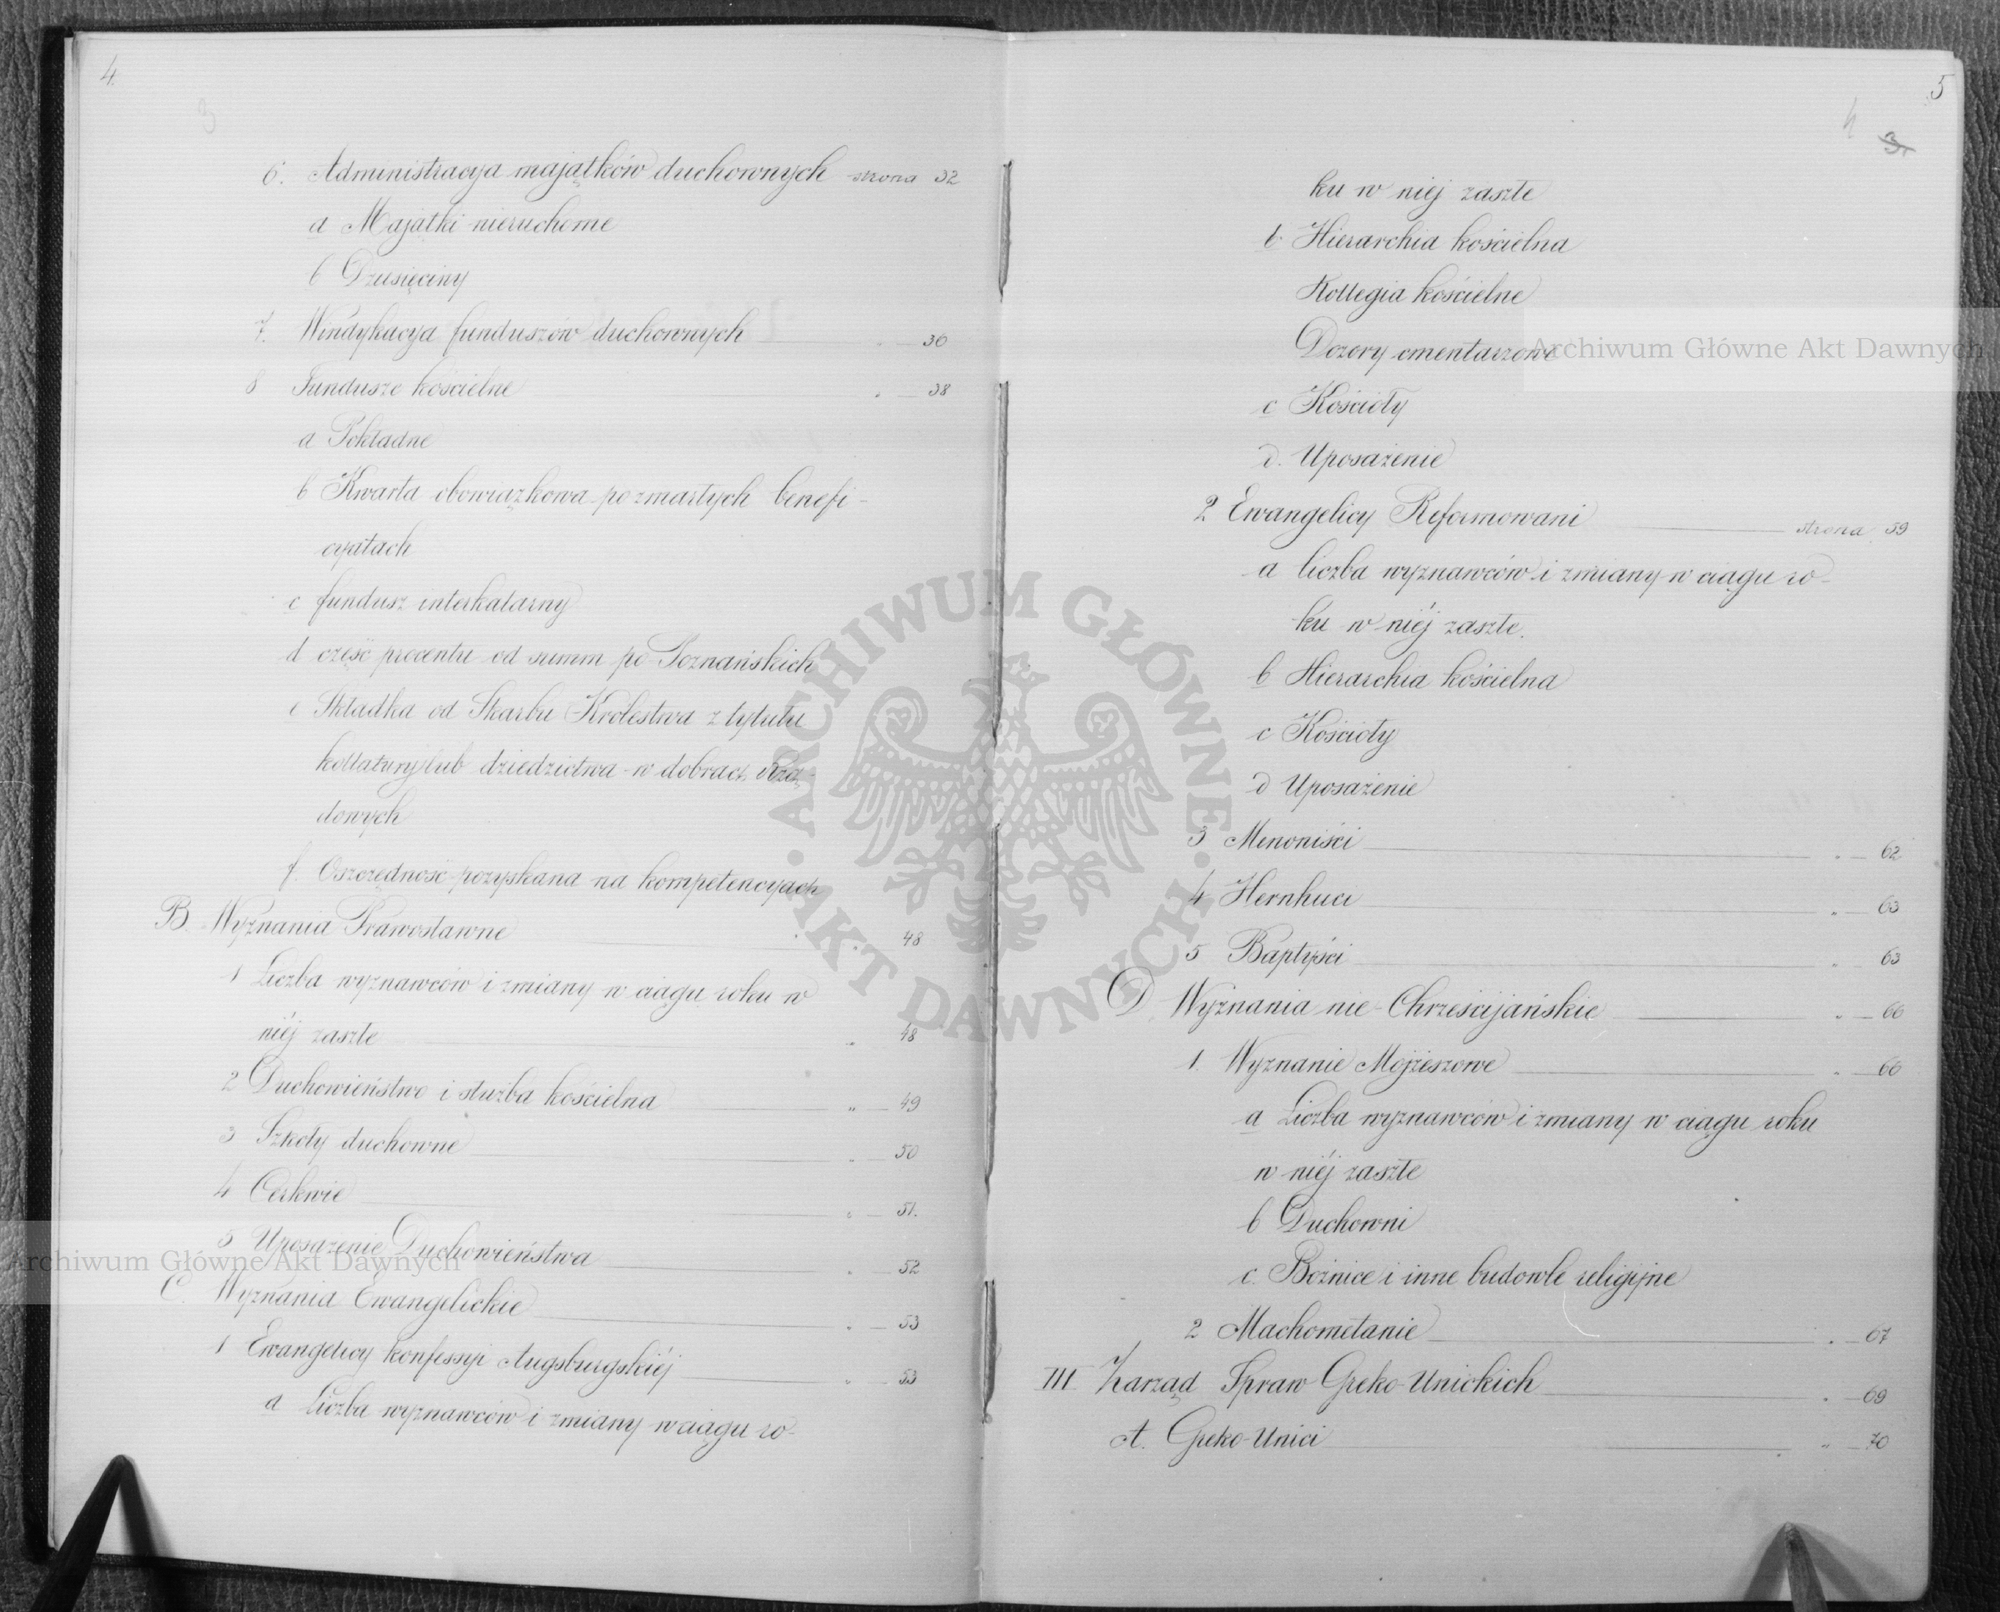 4.
3
6. Administracya majątków duchownych strona 32
a Majątki nieruchome
b Dziesięciny
7. Windykacya funduszów duchownych " — 36
8 Fundusze kościelne " — 38
a Pokładne
b Kwarta obowiązkowa po zmarłych benefi-
cyatach
c fundusz interkalarny
d część procentu od summ po-Poznańskich
e Składka od Skarbu Królestwa z tytułu
kollatury lub dziedzictwa w dobrach Rzą-
dowych
f. Oszczędność pozyskana na kompetencyach
B. Wyznania Prawosławne " 48
1 Liczba wyznawców i zmiany w ciągu roku w
niéj zaszłe " 48
2 Duchowieństwo i służba kościelna " — 49
3 Szkoły duchowne " — 50
4 Cerkwie " — 51.
5 Uposażenie Duchowieństwa " — 52
C. Wyznania Ewangelickie " — 53
1 Ewangelicy konfessyi Augsburgskiéj " — 53
a Liczba wyznawców i zmiany w ciągu ro-
5
4
3.
ku w niéj zaszłe
b Hierarchia kościelna
Kollegia kościelne
Dozory cmentarzowe
c Kościoły
d. Uposażenie
2 Ewangelicy Reformowani strona 59
a liczba wyznawców i zmiany w ciągu ro-
ku w niéj zaszłe.
b Hierarchia kościelna
c Kościoły
d Uposażenie
3 Menoniści " — 62
4 Hernhuci " — 63
5 Baptyści " 63
D. Wyznania nie-Chrześcijańskie " — 66
1. Wyznanie Mojżeszowe " — 66
a Liczba wyznawców i zmiany w ciągu roku
w niéj zaszłe
b Duchowni
c. Bożnice i inne budowle religijne
2 Machometanie " — 67
III Zarząd Spraw Greko-Unickich " — 69
A. Greko-Unici " — 70
Archiwum Główne Akt Dawnych
Archiwum Główne Akt Dawnych
ARCHIWUM GŁÓWNE · AKT DAWNYCH ·